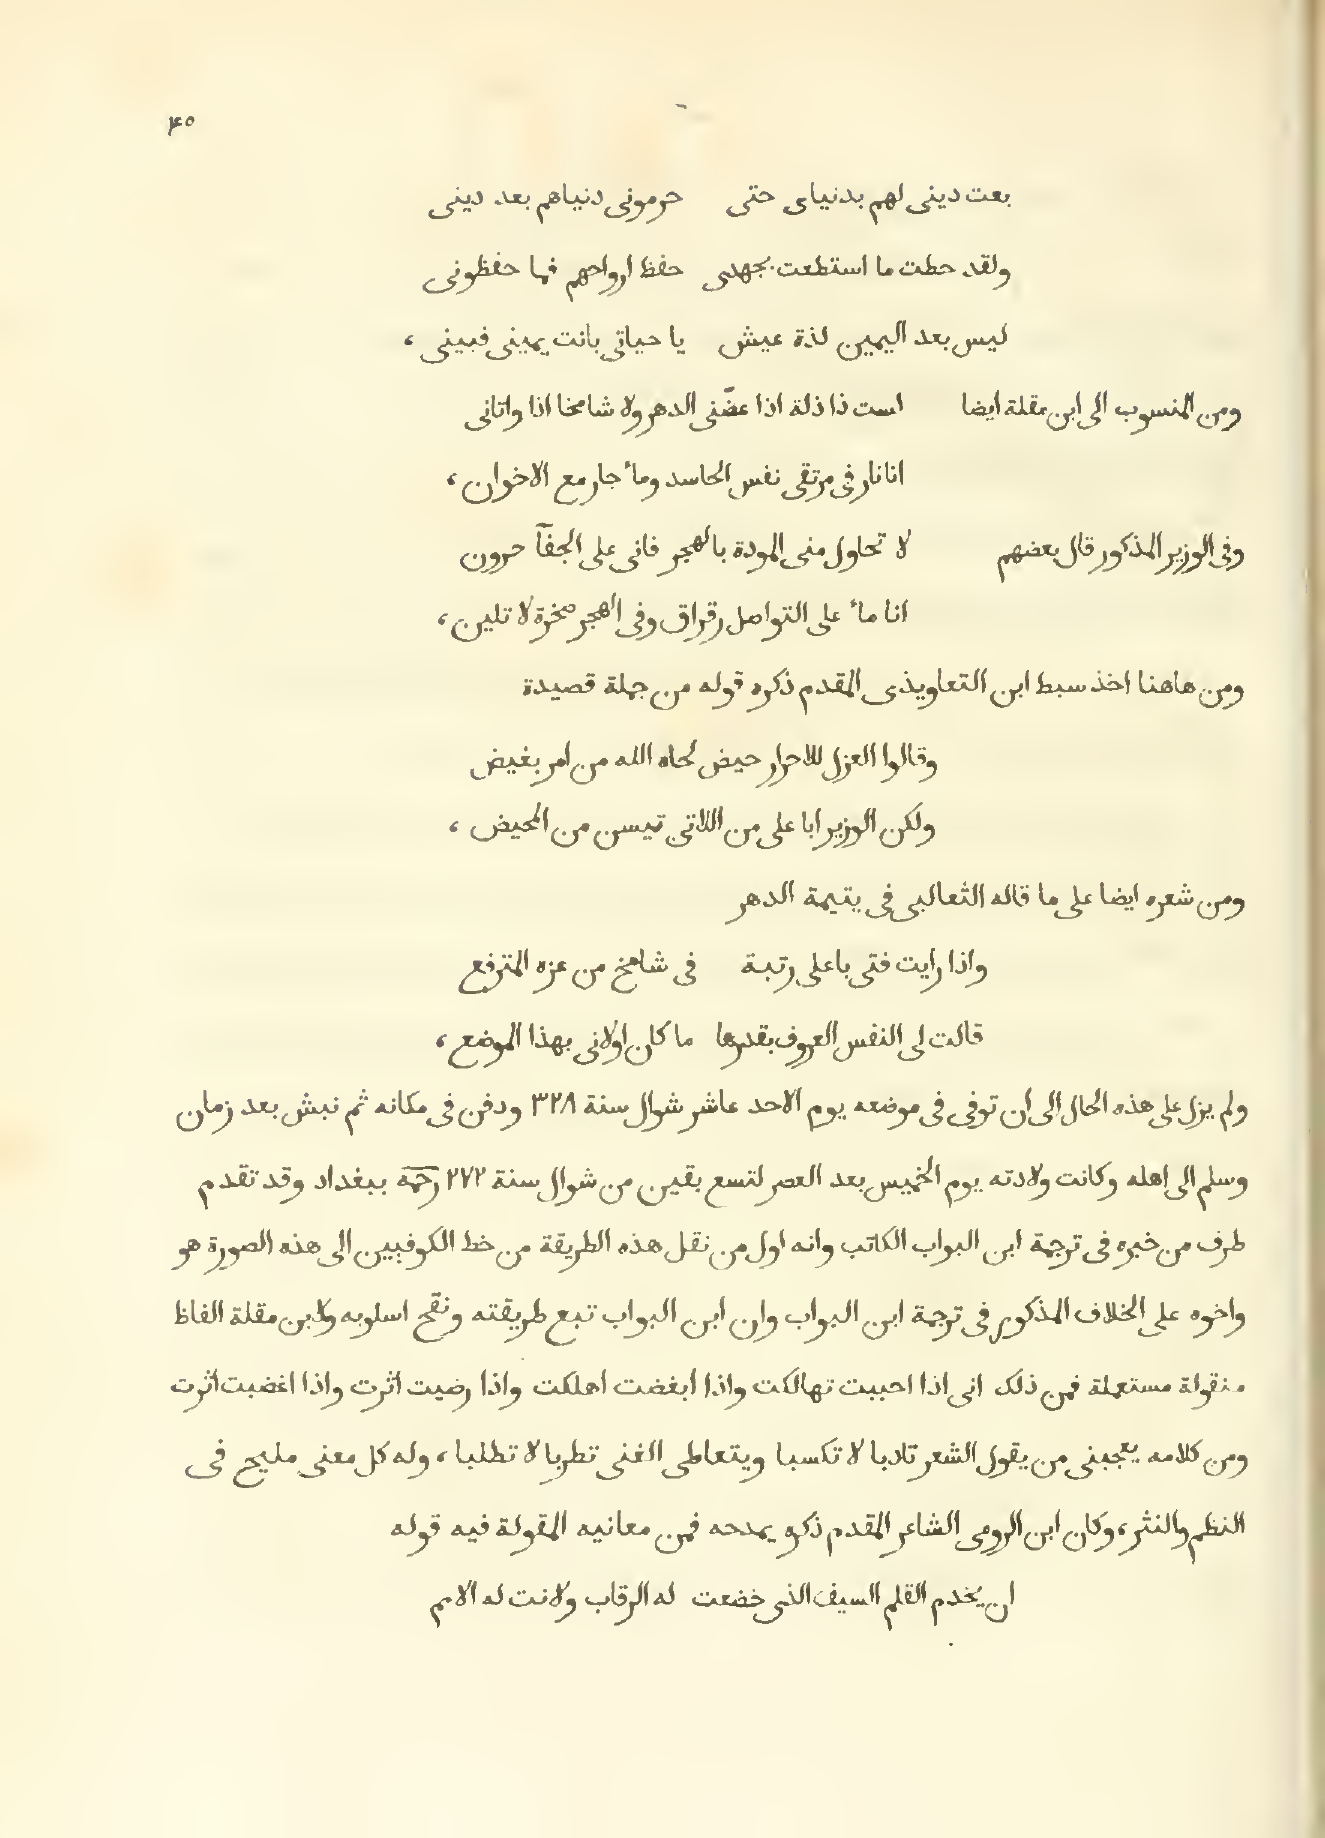 ۴۰
بعت دينى لهم بدنياى حتى حرمونى دنياهم بعد دينى
ولقد حطت ما استطعت بجهدى حفظ ارواحهم فما حفظونى
ليس بعد اليمين لذة عيش يا حياتى بانت يمينى فبينى ،
ومن المنسوب الى ابن مقلة ايضا لست ذا ذلة اذا عضّنى الدهر ولا شامخا اذا واتانى
انا نار فى مرتقى نفس الحاسد وماء جار مع الاخوان ،
وفى الوزير المذكور قال بعضهم لا تحاول منى المودة بالهجر فانى على الجفآ حرون
انا ماء على التواصل رقراق وفى الهجر صخرة لا تلين ،
ومن هاهنا اخذ سبط ابن التعاويذى المقدم ذكره قوله من جملة قصيدة
وقالوا العزل للاحرار حيض لحاه الله من امر بغيض
ولكن الوزير ابا على من اللاتى تيسن من المحيض ،
ومن شعره ايضا على ما قاله الثعالبى فى يتيمة الدهر
واذا رايت فتى باعلى رتبة فى شامخ من عزه المترفع
قالت لى النفس العروف بقدرها ما كان اولانى بهذا الموضع ،
ولم يزل على هذه الحال الى ان توفى فى موضعه يوم الاحد عاشر شوال سنة ٣٢٨ ودفن فى مكانه ثم نبش بعد زمان
وسلم الى اهله وكانت ولادته يوم الخميس بعد العصر لتسع بقين من شوال سنة ٢٧٢ رحمه ببغداد وقد تقدم
طرف من خبره فى ترجمة ابن البواب الكاتب وانه اول من نقل هذه الطريقة من خط الكوفيين الى هذه الصورة هو
واخوه على الخلاف المذكور فى ترجمة ابن البواب وان ابن البواب تبع طريقته ونقح اسلوبه ولابن مقلة الفاظ
منقولة مستعملة فمن ذلك انى اذا احببت تهالكت واذا ابغضت اهلكت واذا رضيت اثرت واذا اغضبت اثرت
ومن كلامه يعجبنى من يقول الشعر تادبا لا تكسبا ويتعاطى الغنى تطربا لا تطلبا ، وله كل معنى مليح فى
النظم والنثر ، وكان ابن الرومى الشاعر المقدم ذكره يمدحه فمن معانيه المقولة فيه قوله
ان يخدم القلم السيف الذى خضعت له الرقاب ولانت له الامم